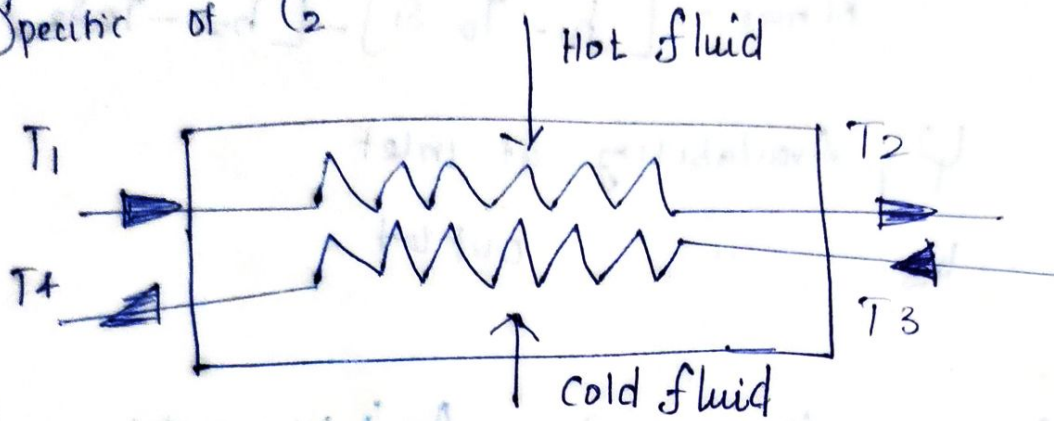 Specific of C2
Hot fluid
T1
T2
T4
T3
Cold fluid